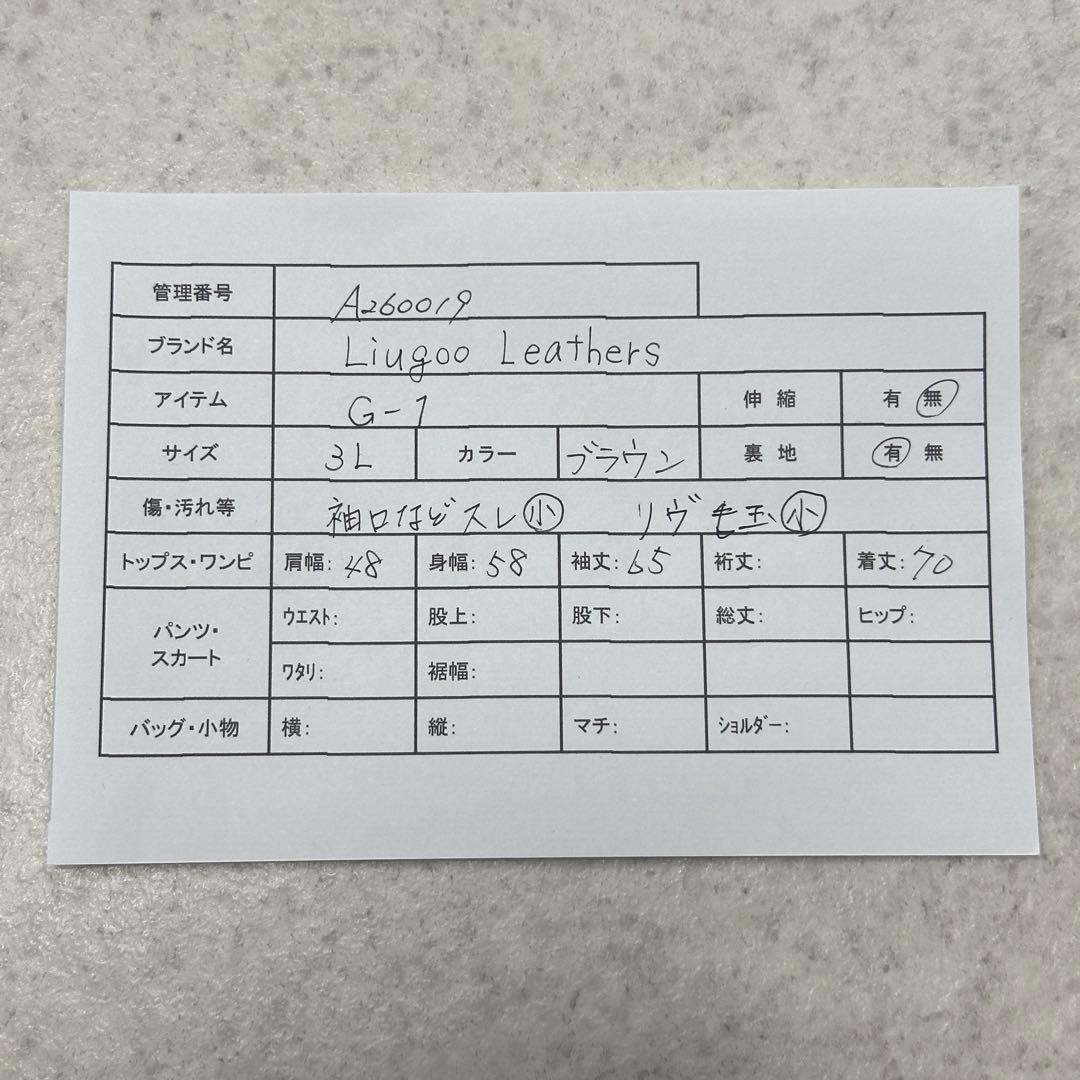 管理番号 A260019
ブランド名 Liugoo Leathers
アイテム G-1 伸縮 有 無
サイズ 3L カラー ブラウン 裏地 有 無
傷・汚れ等 袖口などスレ 小 リヴ毛玉 小
トップス・ワンピ 肩幅: 48 身幅: 58 袖丈: 65 裄丈: 着丈: 70
パンツ・スカート ウエスト: 股上: 股下: 総丈: ヒップ:
ワタリ: 裾幅:
バッグ・小物 横: 縦: マチ: ショルダー: